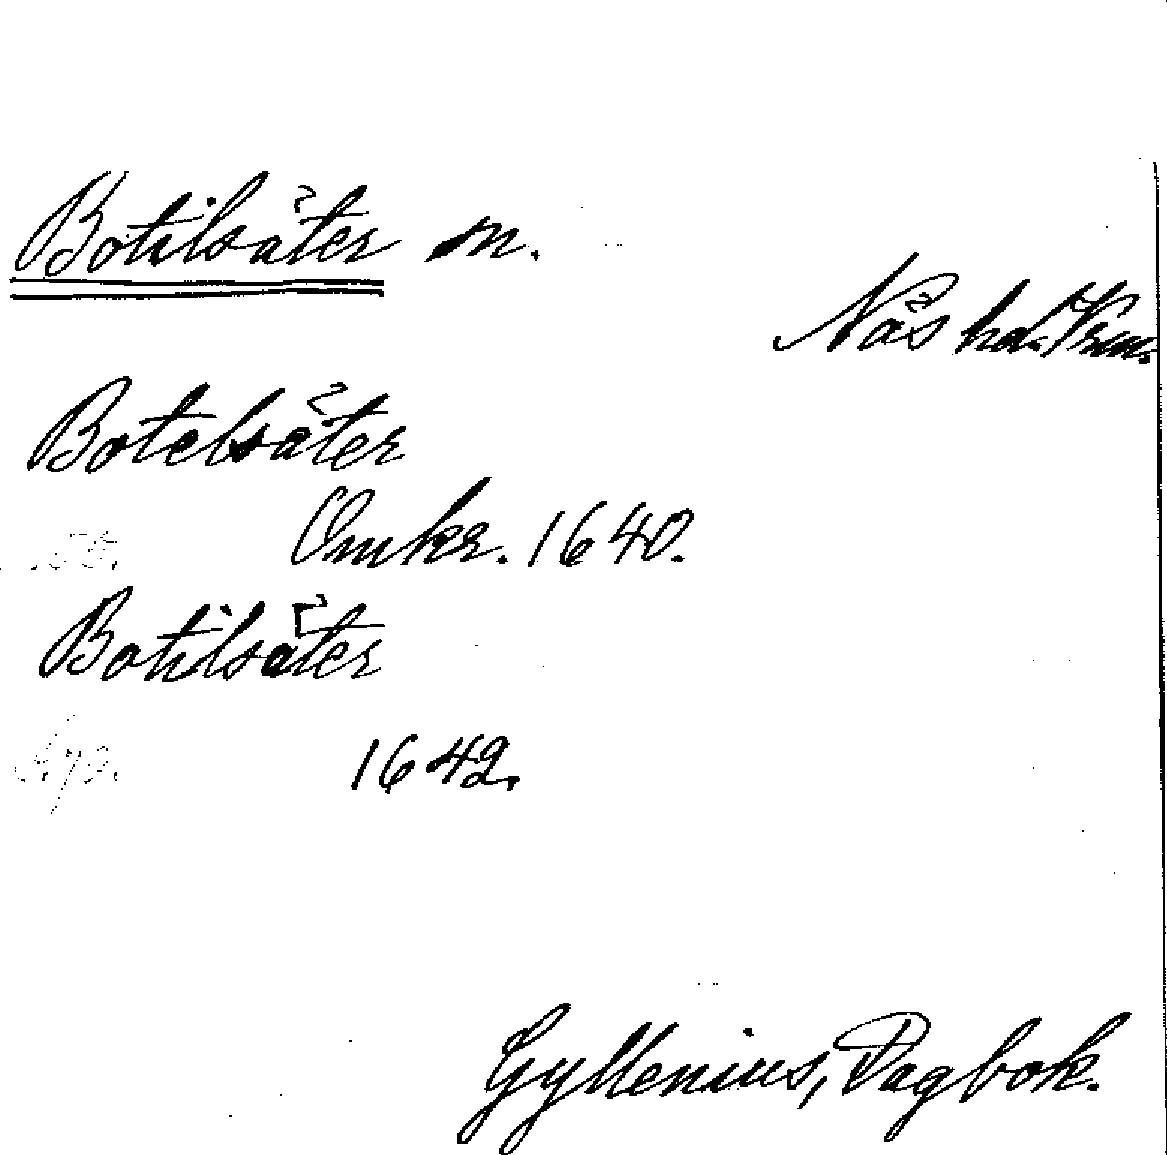 Botilsäter sn.
Näs hd. Vrm.
Botelsäter
Omkr. 1640.
Botilsäter
1642.
Gyllenius, Dagbok.